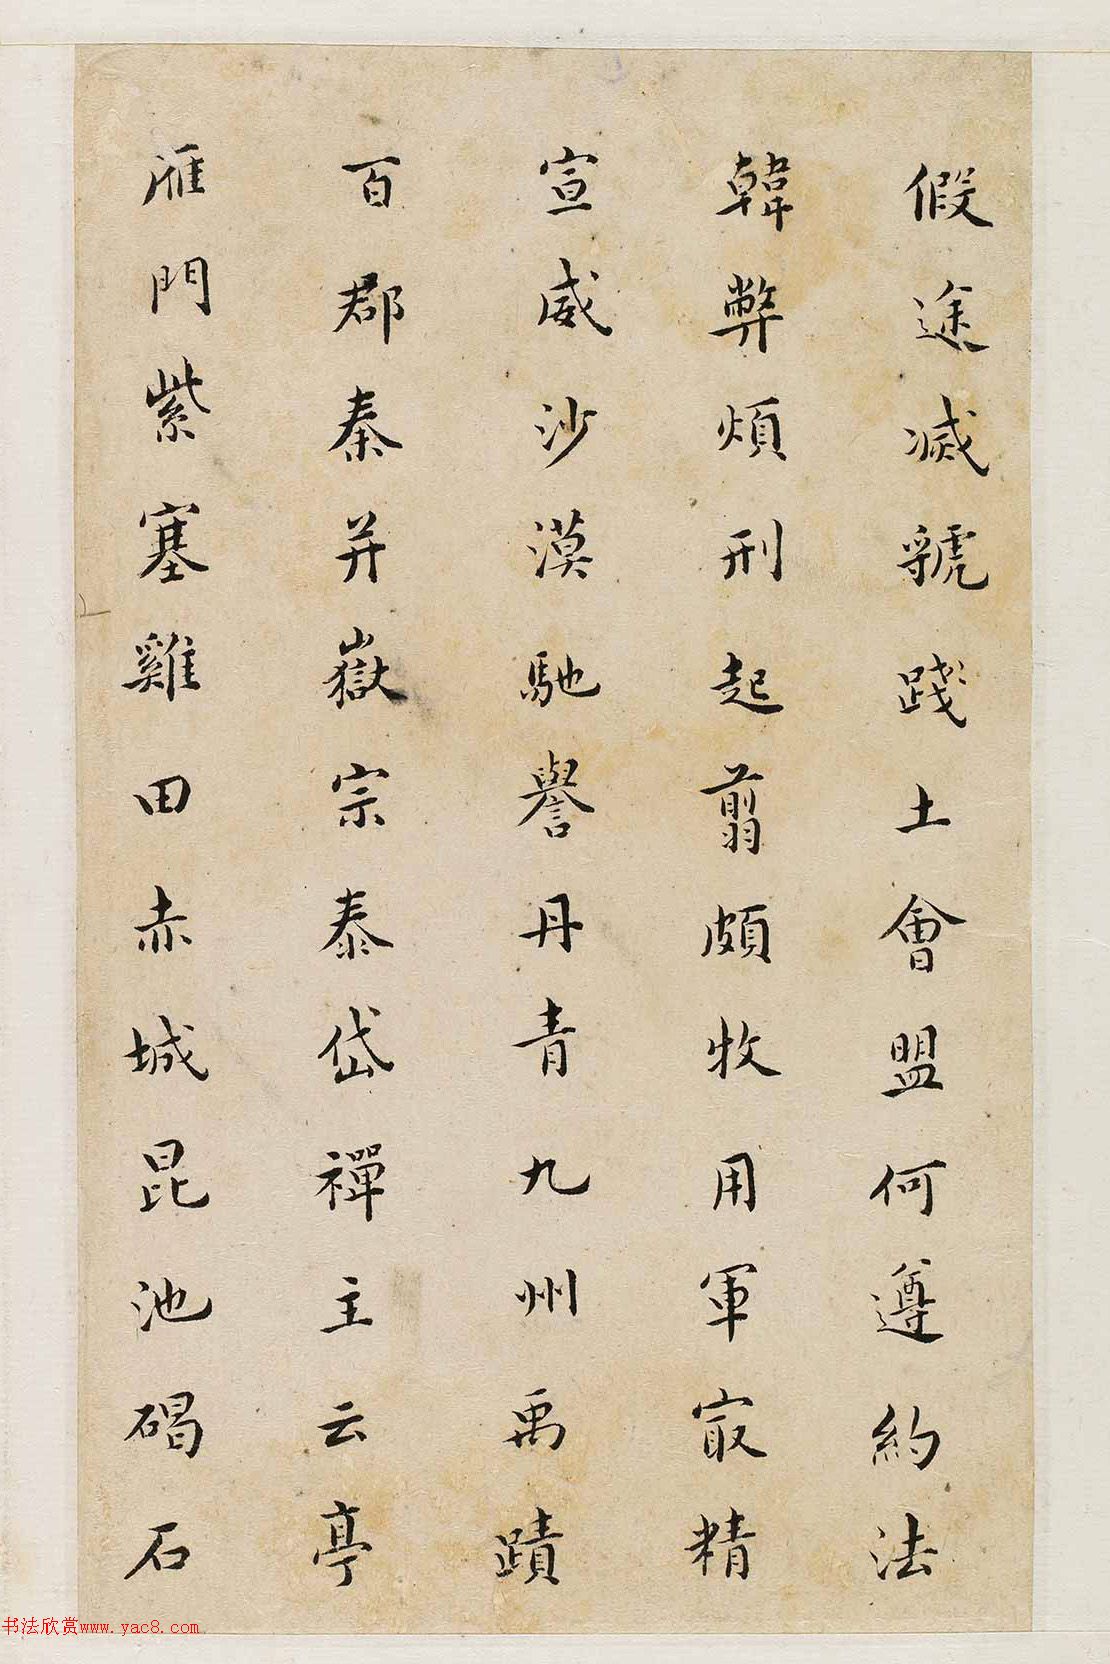 假途滅虢踐土會盟何遵約法
韓弊煩刑起翦頗牧用軍㝡精
宣威沙漠馳譽丹青九州禹蹟
百郡秦并嶽宗泰岱禪主云亭
雁門紫塞雞田赤城昆池碣石
书法欣赏www.yac8.com